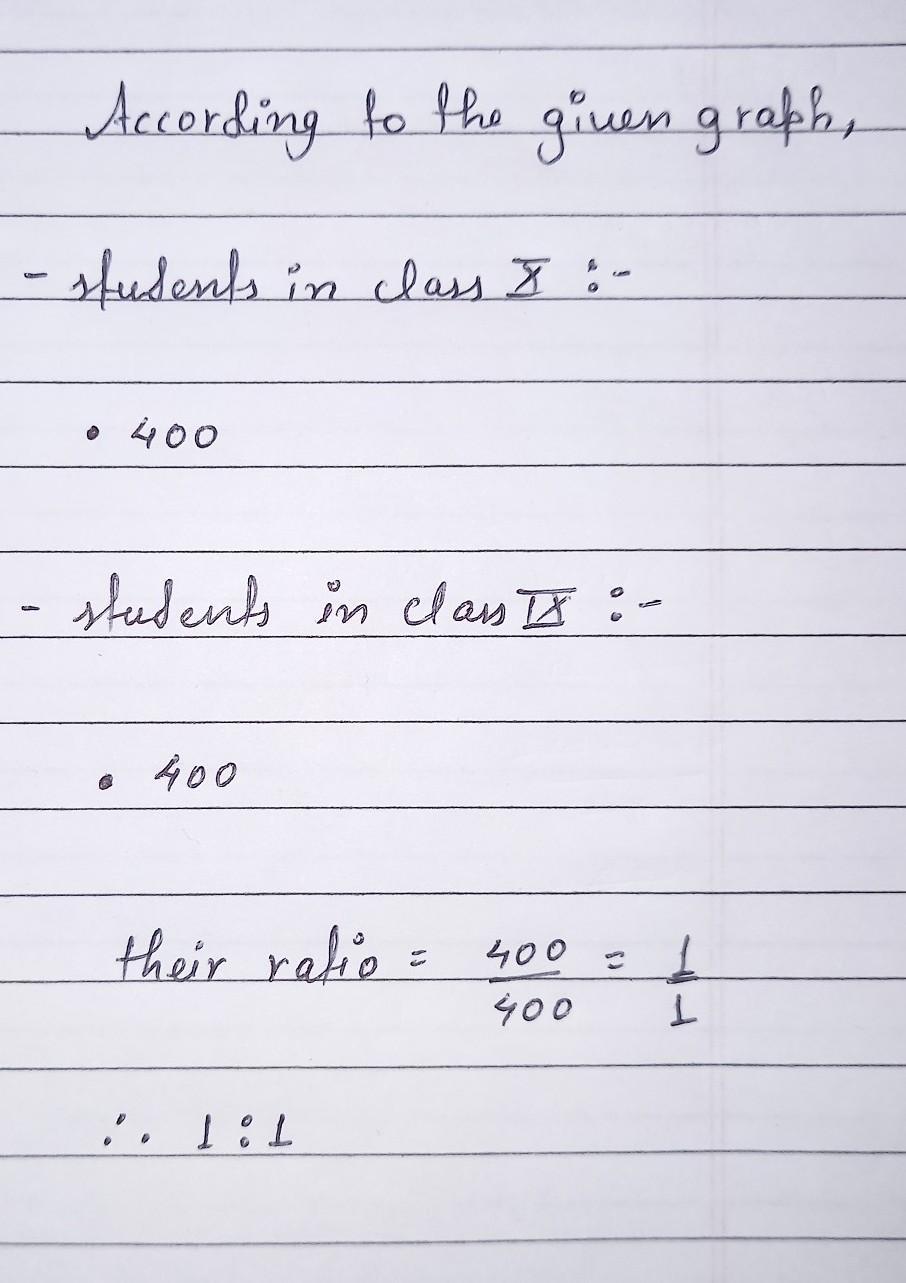 According to the given graph,
- students in class X :-
• 400
- students in class IX :-
• 400
their ratio = 400/400 = 1/1
∴ 1:1